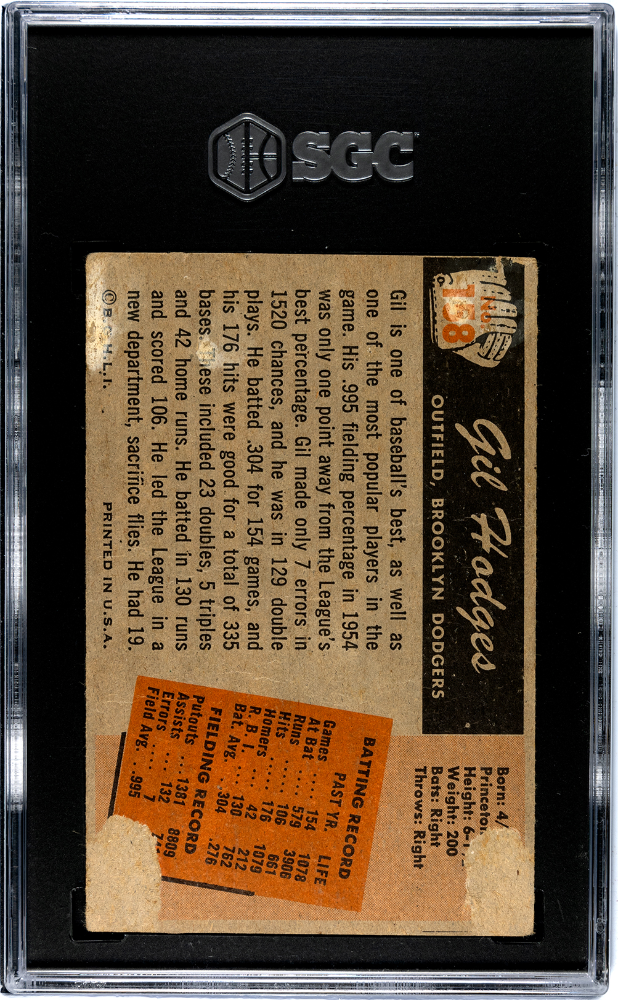 SGC
No
158
Gil Hodges
OUTFIELD, BROOKLYN DODGERS
Born: 4/
Princeton
Height: 6-1
Weight: 200
Bats: Right
Throws: Right
Gil is one of baseball's best, as well as
one of the most popular players in the
game. His .995 fielding percentage in 1954
was only one point away from the League's
best percentage. Gil made only 7 errors in
1520 chances, and he was in 129 double
plays. He batted .304 for 154 games, and
his 176 hits were good for a total of 335
bases. These included 23 doubles, 5 triples
and 42 home runs. He batted in 130 runs
and scored 106. He led the League in a
new department, sacrifice flies. He had 19.
BATTING RECORD
PAST YR. LIFE
Games .... 154 1078
At Bat .... 579 3906
Runs .... 106 661
Hits .... 176 1079
Homers .... 42 212
R. B. I. .... 130 762
Bat. Avg. .. .304 .276
FIELDING RECORD
Putouts .... 1381 8809
Assists .... 132
Errors .... 7
Field Avg. .. .995
© B.G.H.L.I. PRINTED IN U.S.A.